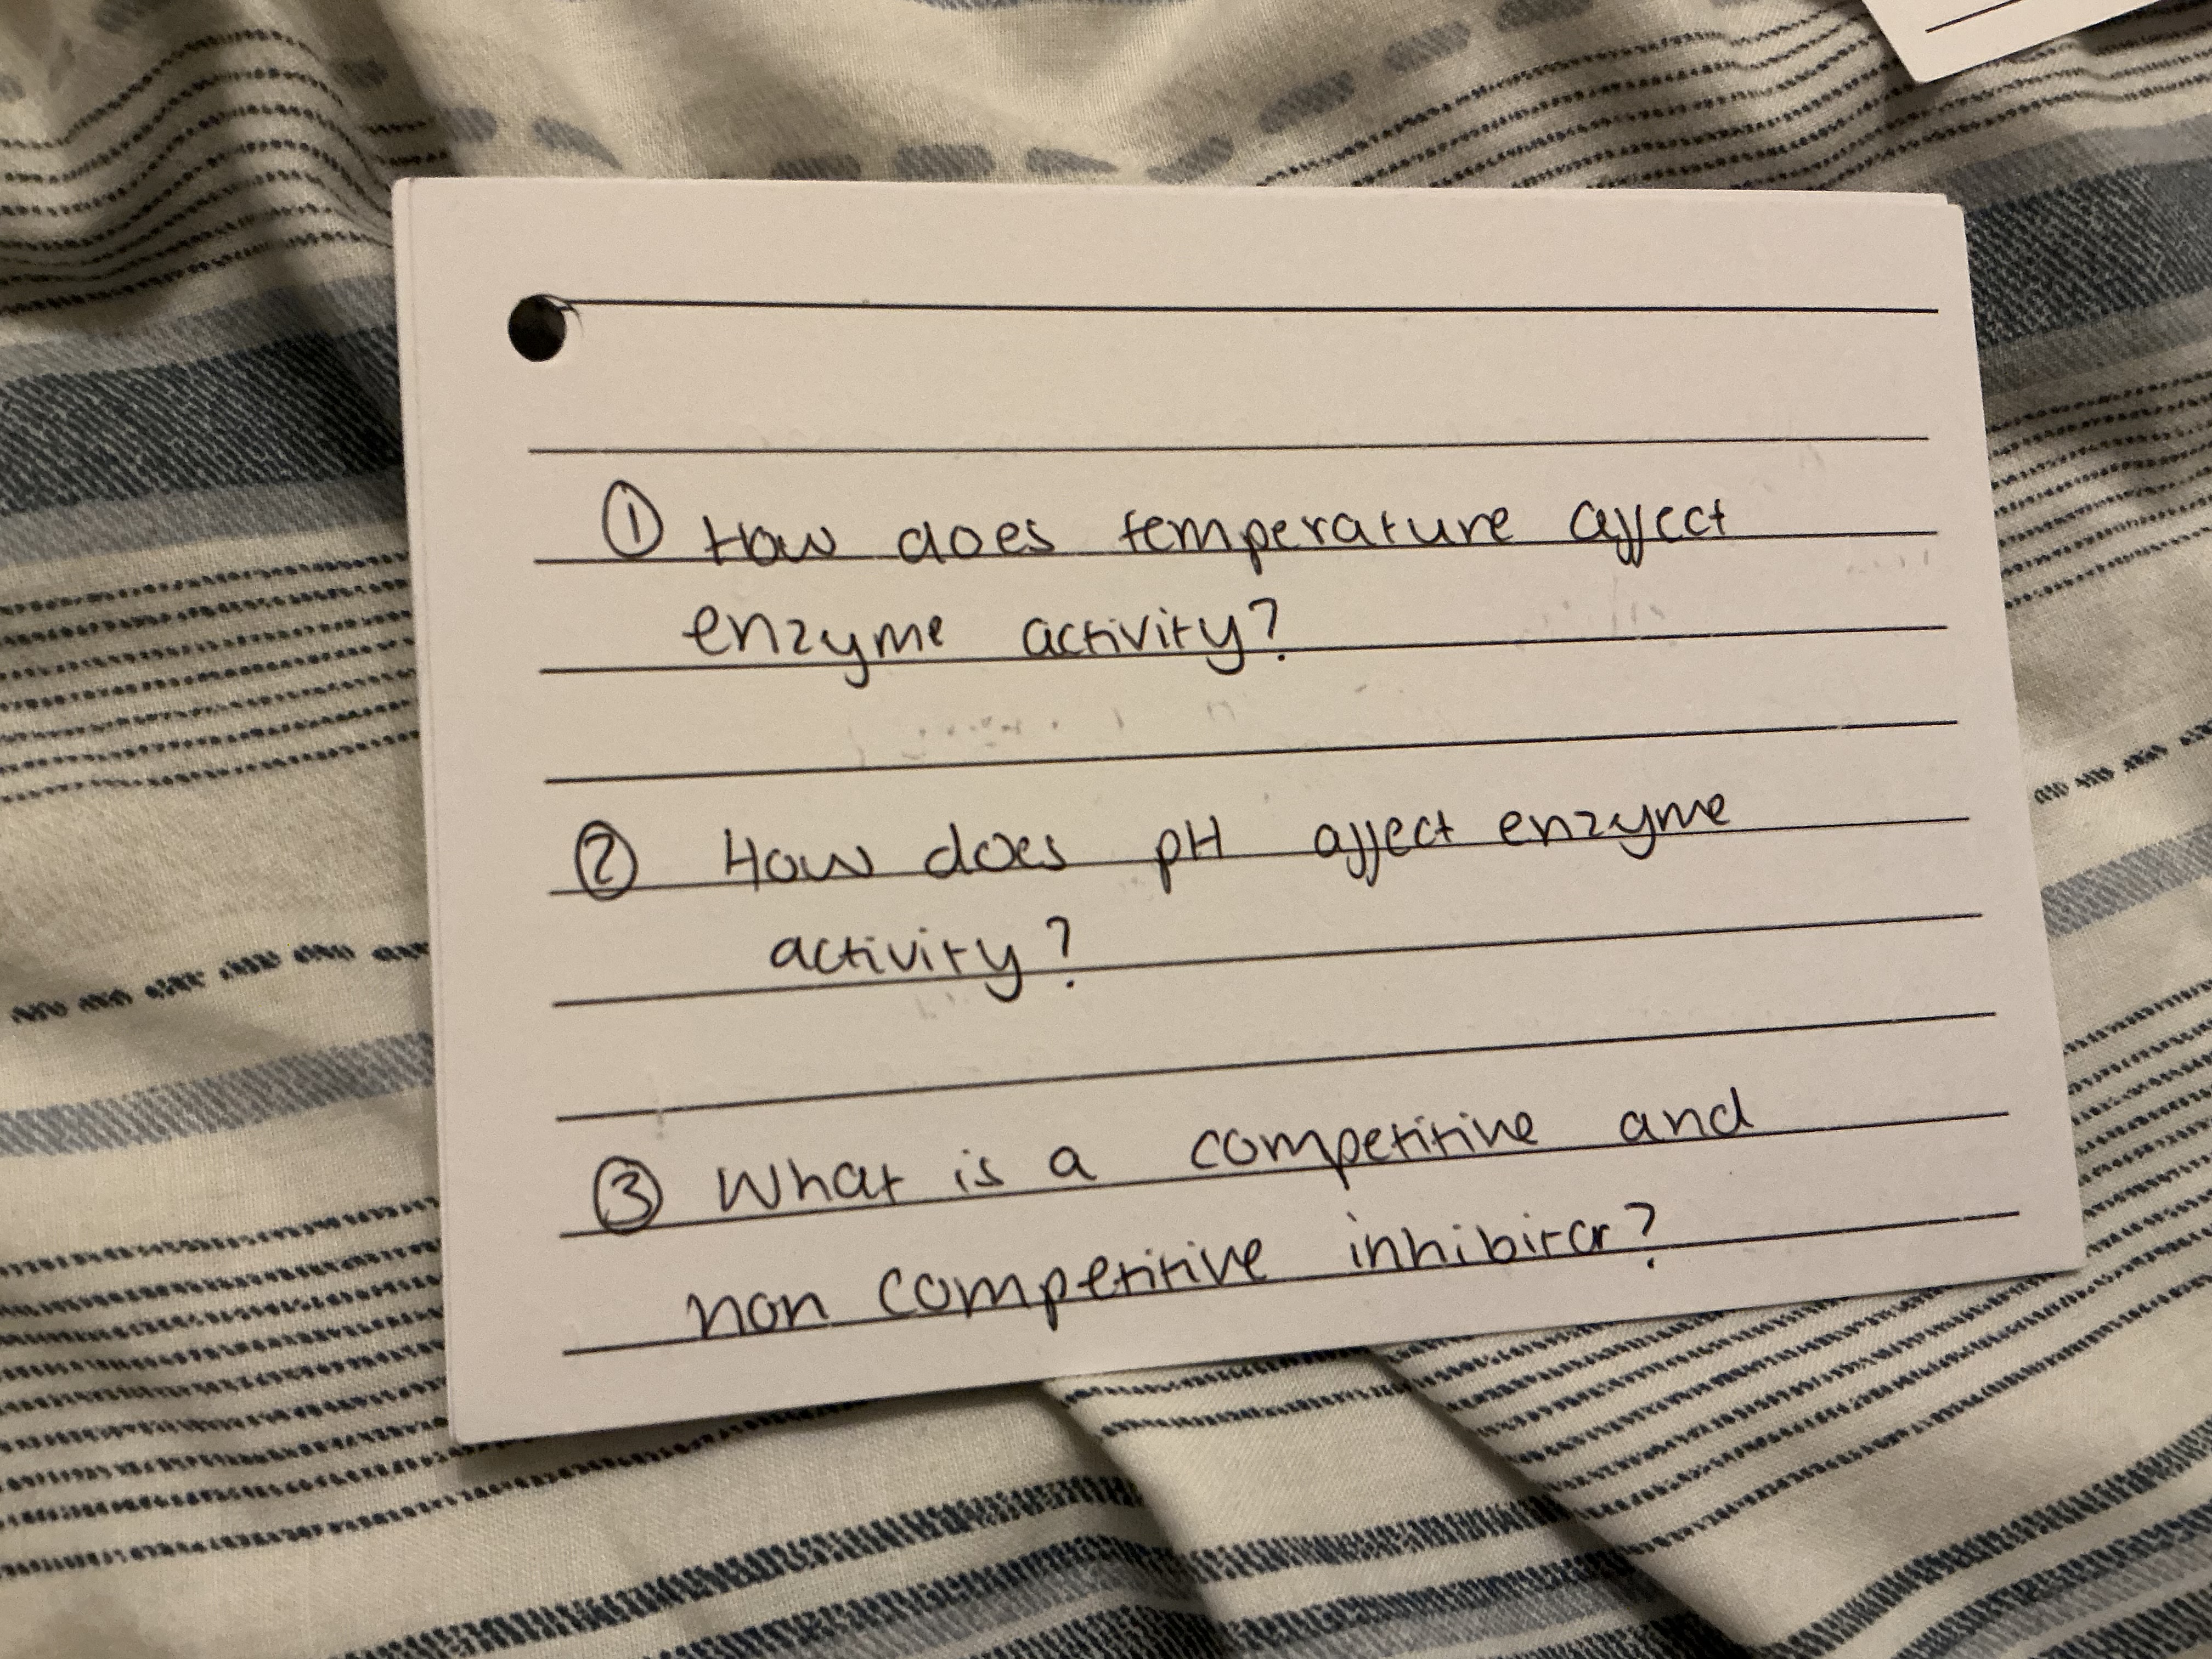 ① How does temperature affect
enzyme activity?
② How does pH affect enzyme
activity?
③ What is a competitive and
non competitive inhibitor?